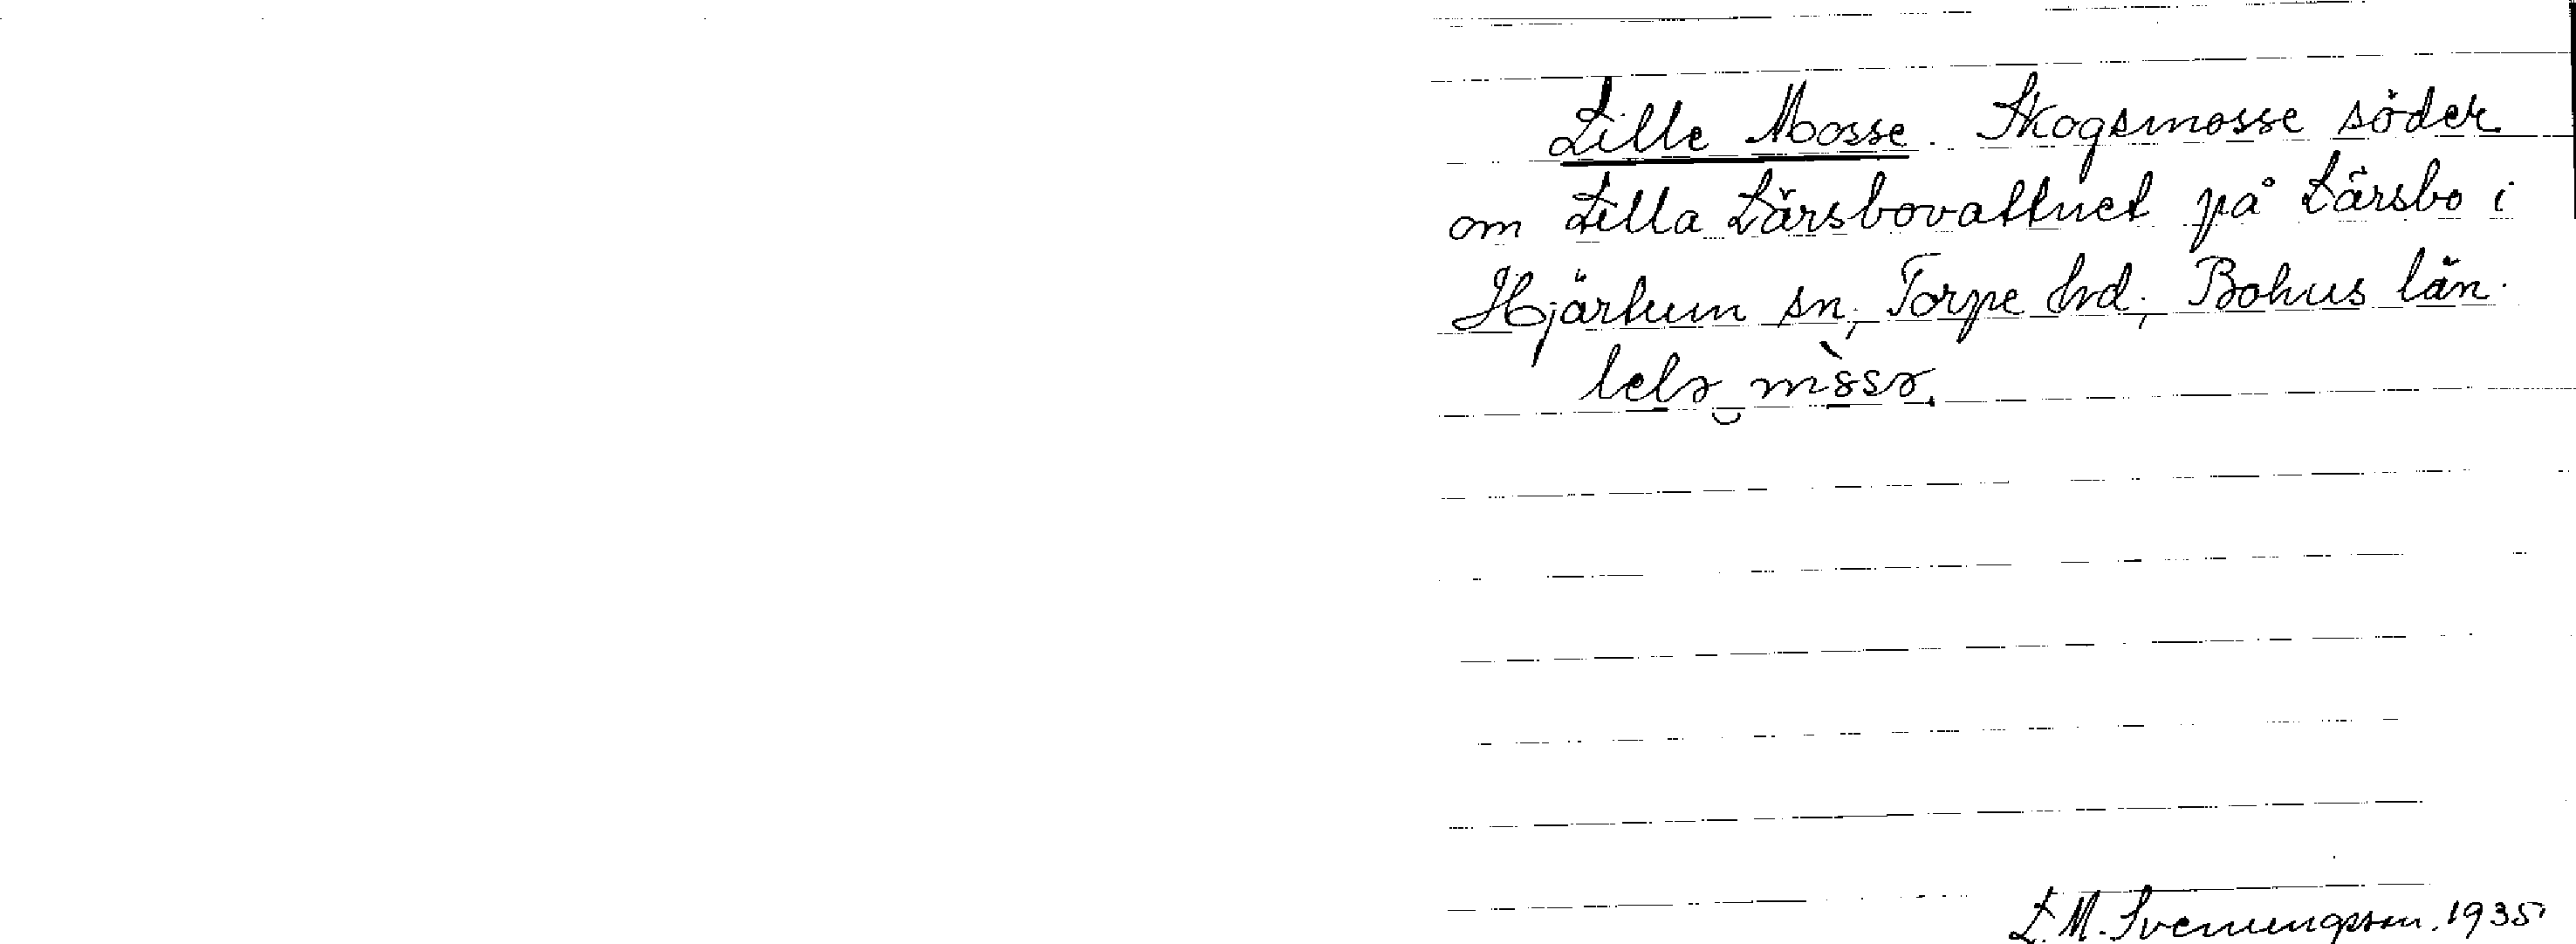 Lille Mosse. Skogsmosse söder
om Lilla Lärsbovattnet på Lärsbo i
Hjärtum sn, Torpe hd, Bohus län.
L. M. Svenungsson. 1935